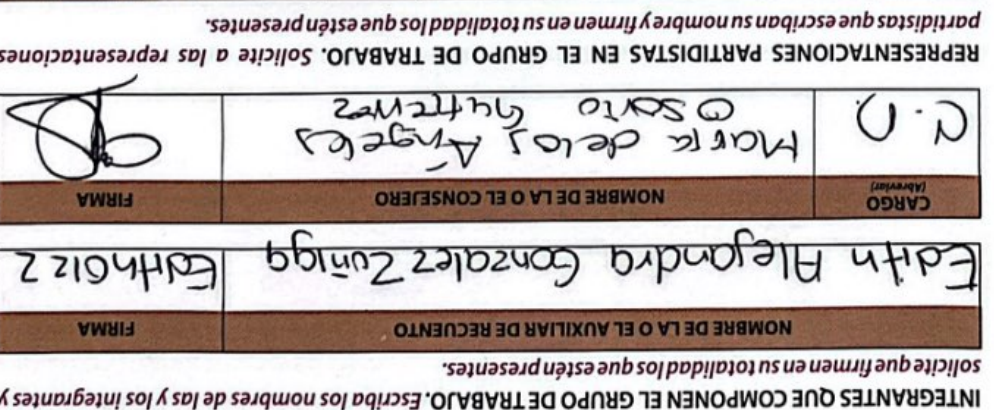 INTEGRANTES QUE COMPONEN EL GRUPO DE TRABAJO. Escriba los nombres de las y los integrantes y
solicite que firmen en su totalidad los que estén presentes.
NOMBRE DE LA O EL AUXILIAR DE RECUENTO FIRMA
Edith Alejandra Gonzalez Zuñiga EdithGlzz
CARGO (Abreviar) NOMBRE DE LA O EL CONSEJERO FIRMA
C.D. María de los Ángeles
Osorio Gutierrez
REPRESENTACIONES PARTIDISTAS EN EL GRUPO DE TRABAJO. Solicite a las representaciones
partidistas que escriban su nombre y firmen en su totalidad los que estén presentes.